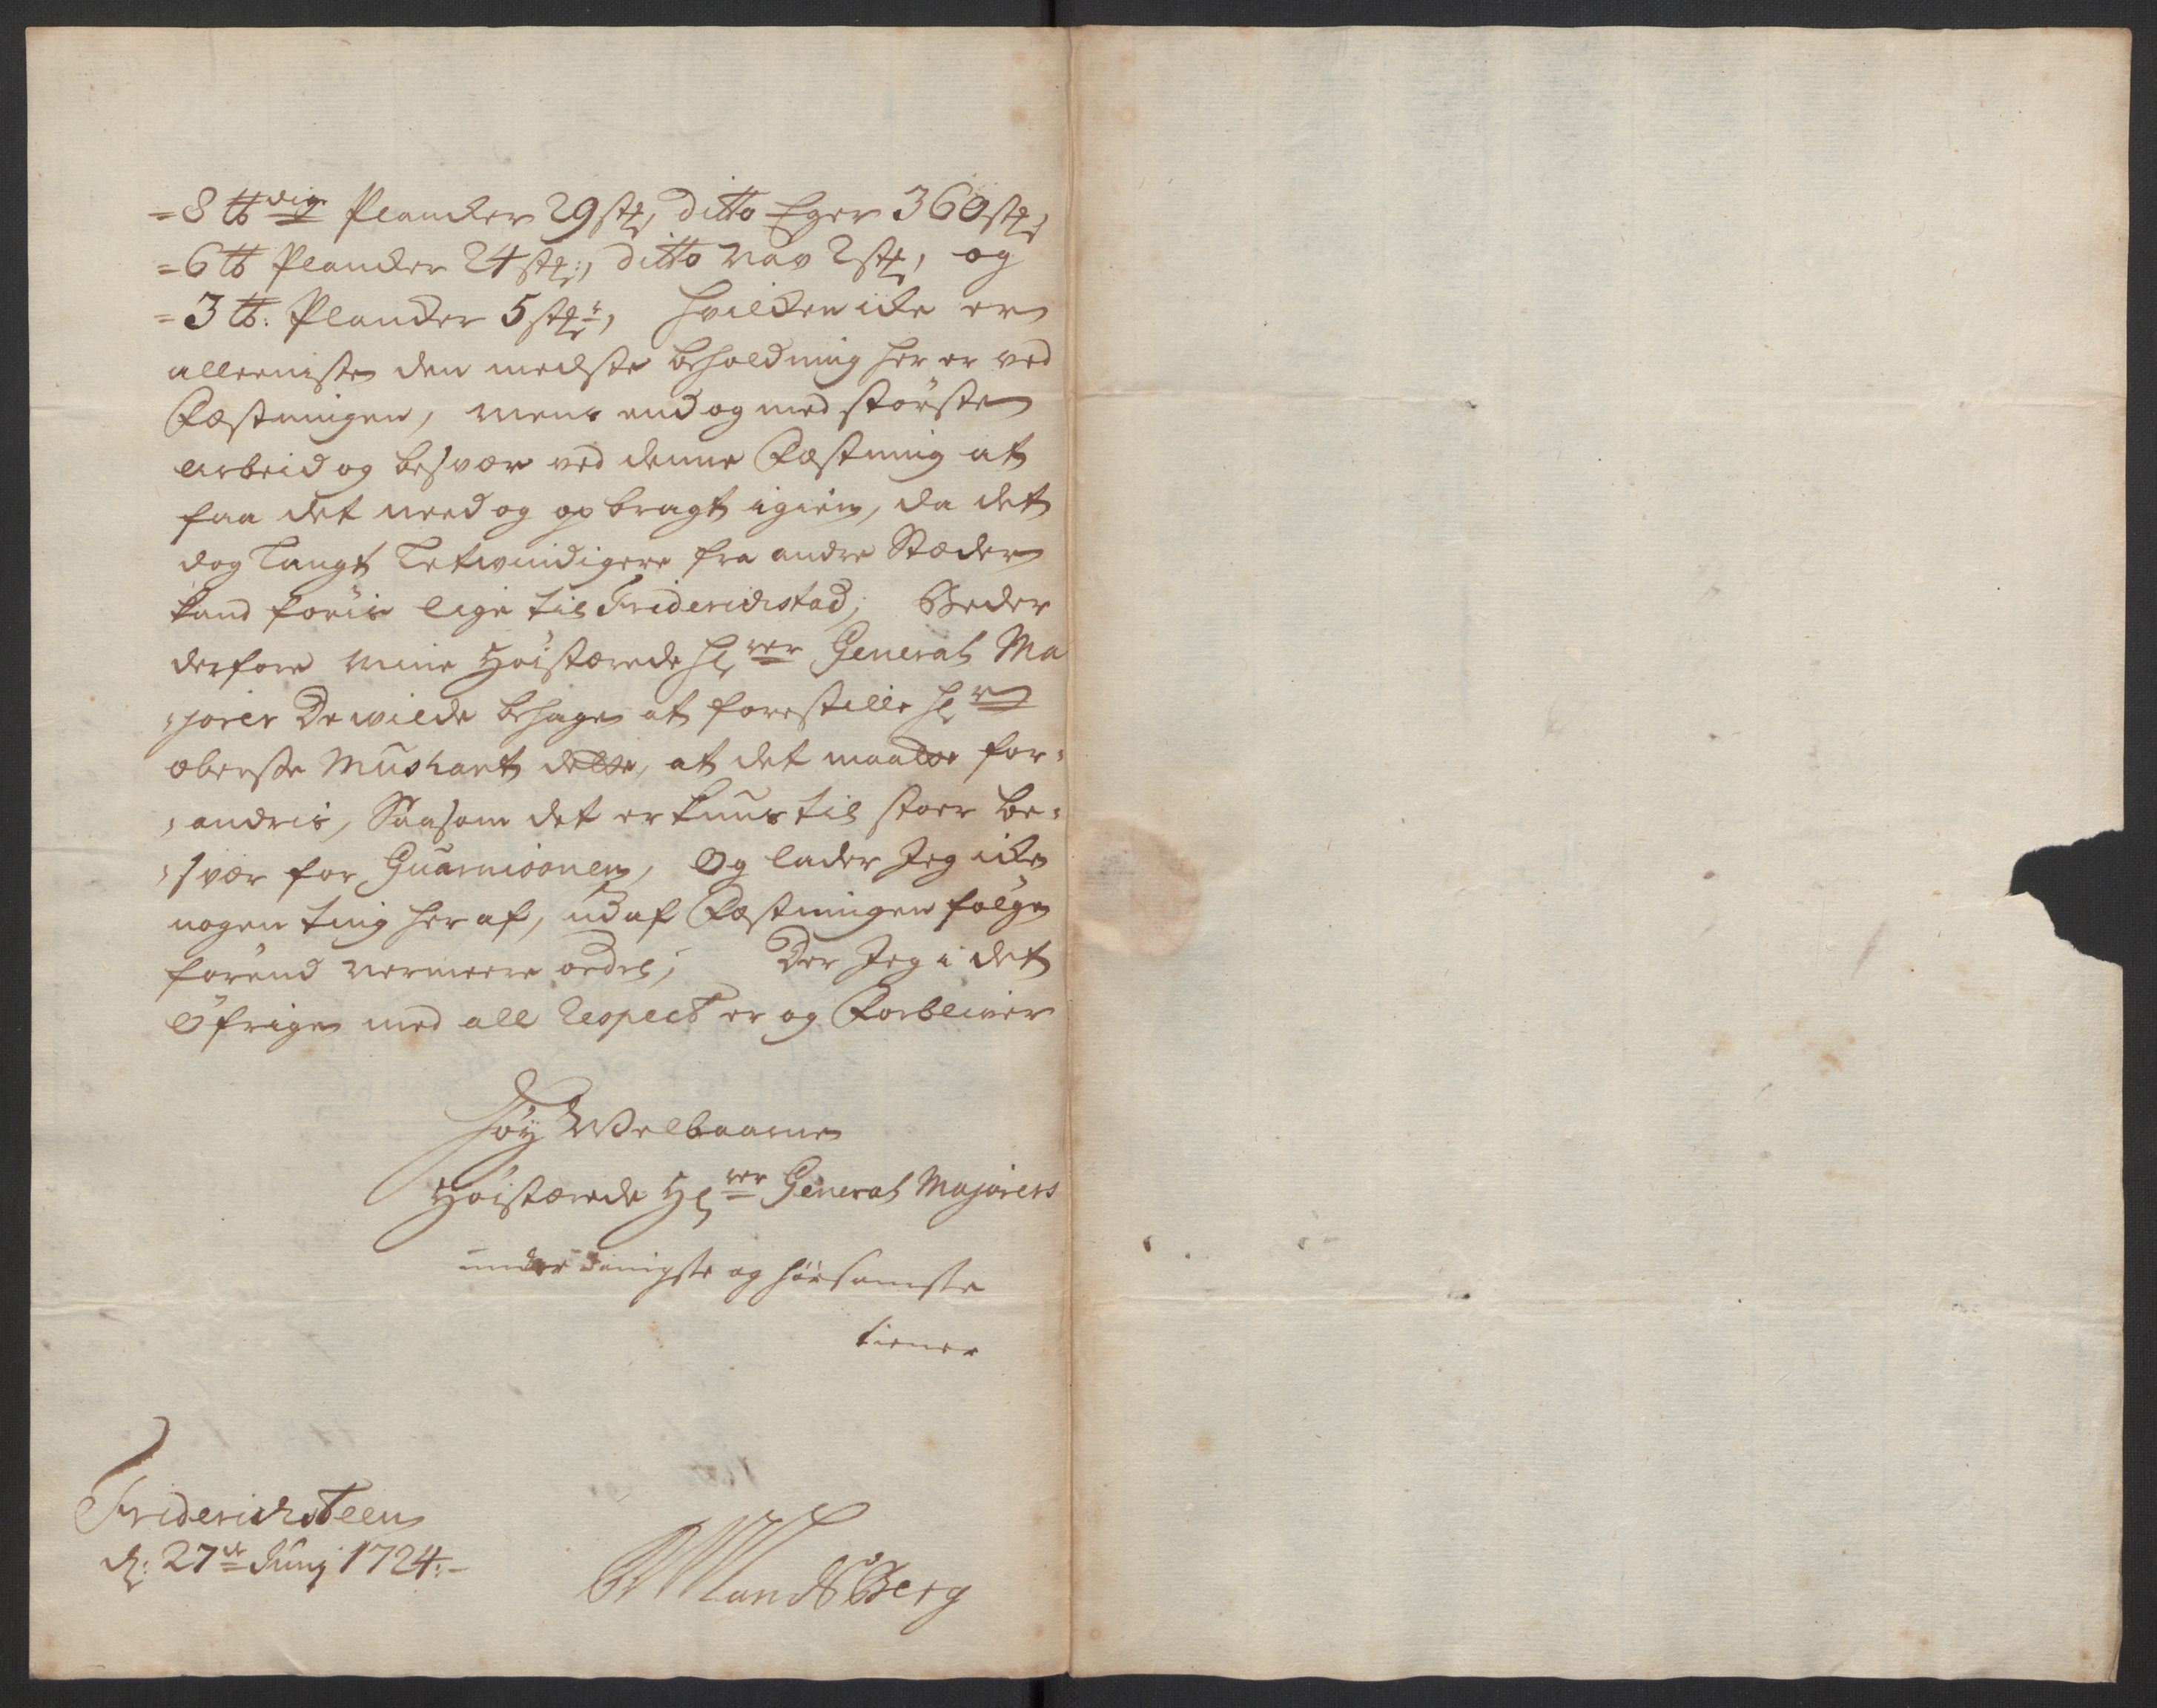 =8 ℔dig Plancker 29 stk, ditto Eger 360 stk,
=6 ℔ Plancker 24 stk:, ditto Nav 2 stk, og
=3 ℔: Plancker 5 stkr, hvilcken icke er
alleeniste den meeste beholdning her er ved
Fæstningen, mens end og med største
arbeid og besvær ved denne Fæstning at
faa det need og op bragt igien, da det
dog langt letvindigere fra andre Stæder
kand føris lige til Friderichstad; Beder
derfore mine Høistærede Hrrer General Ma
=jorer De wilde behage at forestille Hr
oberste Mushart dette, at det maatte for=
=andris, Saasom det er kuns til stoer be=
=svær for Guarnisonen, Og lader Jeg icke
nogen ting her af, ud af Fæstningen følge
førend nermeere ordre; Der Jeg i det
Øfrige med all Respect er og Forbliver
Høy Welbaarne
Høistærede Hrrer General Majorers
underdanigste og hørsamste
tiener
Friderichsteen
d: 27de Junj 1724.-
LandsBerg